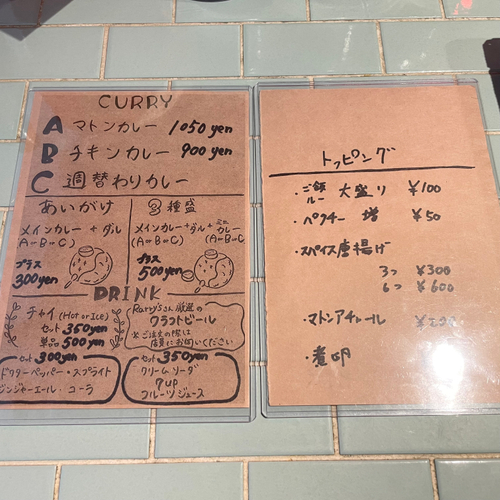 CURRY
A マトンカレー 1050yen
B チキンカレー 900yen
C 週替わりカレー
あいがけ
メインカレー + ダル
(A or B or C)
プラス
300yen
3種盛
メインカレー+ダル+ミニカレー
(A or B or C) (A or B or C)
プラス
500yen
DRINK
チャイ (Hot or Ice)
セット 350yen
単品 500yen
厳選の
クラフトビール
※ご注文の際は
店員にお伺いください
セット 300yen
ドクターペッパー・スプライト
ジンジャーエール・コーラ
セット 350yen
クリームソーダ
7up
フルーツジュース
トッピング
・ご飯 ルー 大盛り ¥100
・パクチー 増 ¥50
・スパイス唐揚げ
3つ ¥300
6つ ¥600
・マトンアチャール
・煮卵